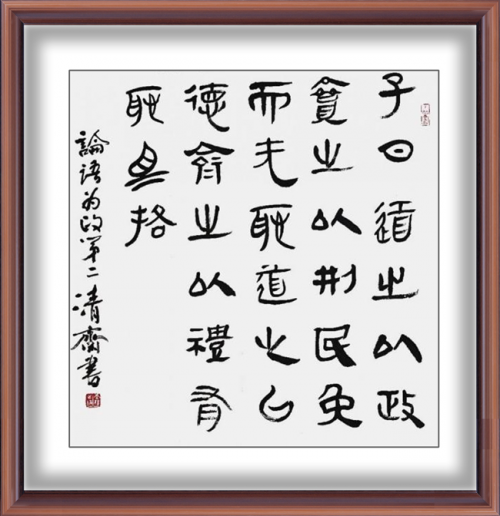 子曰道之以政
齊之以刑民免
而无耻道之以
德齊之以禮有
耻且格
論語为政第二 清齋書